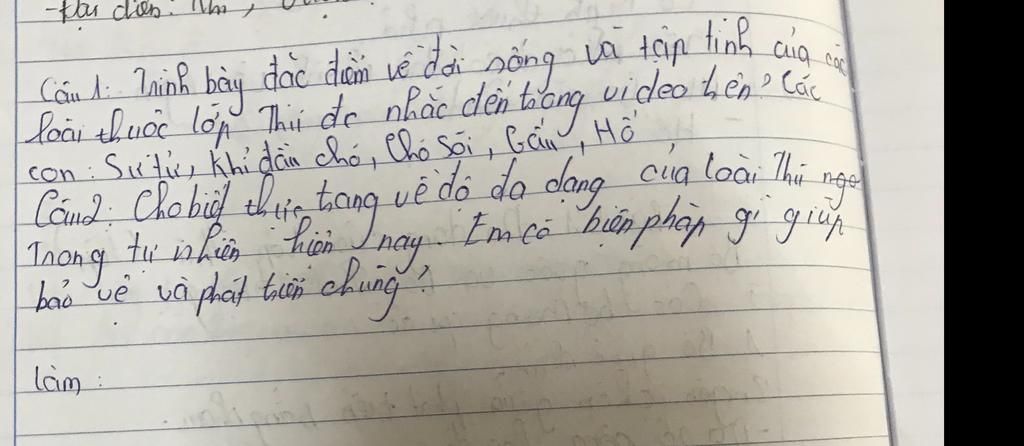 - Đại diện: Thú,
Câu 1: Trình bày đặc điểm về đời sống và tập tính của các
loài thuộc lớp Thú đc nhắc đến trong video trên? Các
con: Sư tử, Khỉ đầu chó, Chó Sói, Gấu, Hổ
Câu 2: Cho biết thực trạng về độ đa dạng của loài Thú ngo
Trong tự nhiên hiện nay. Em có biện pháp gì giúp
bảo vệ và phát triển chúng?
làm: